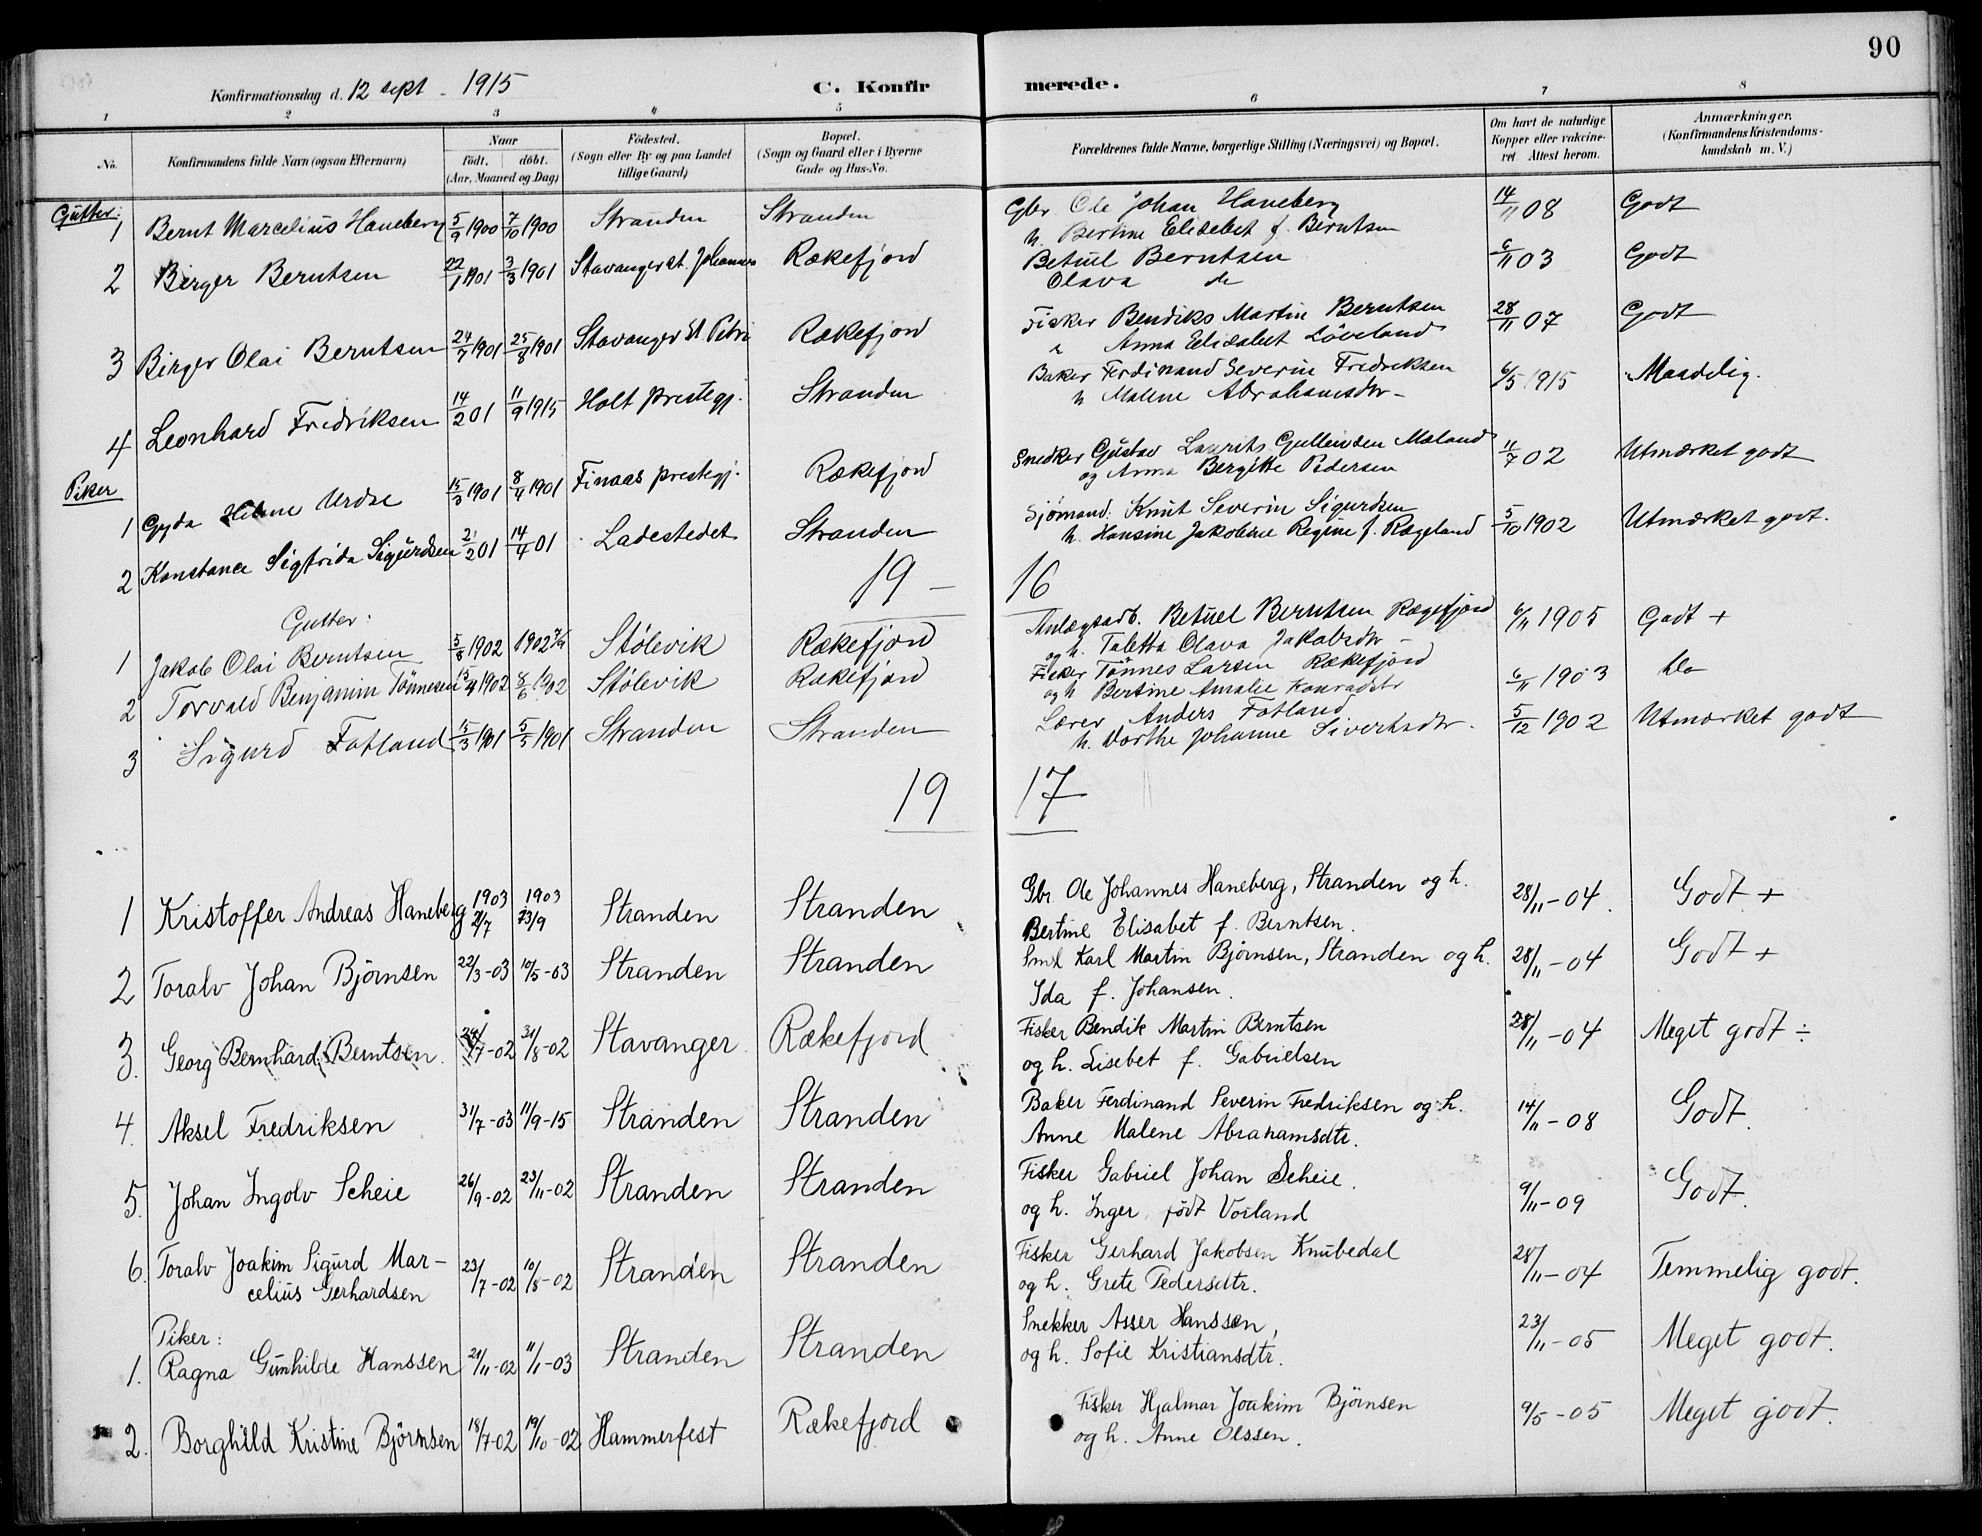 90
Konfirmationsdag d. 12 sept. 1915
C. Konfirmerede.
1 2 3 4 5 6 7 8
No.
Konfirmandens fulde Navn (ogsaa Efternavn)
Naar
födt, döbt.
(Aar, Maaned og Dag)
Födested.
(Sogn eller By og paa Landet
tillige Gaard)
Bopæl.
(Sogn og Gaard eller i Byerne
Gade og Hus-No.
Forældrenes fulde Navne, borgerlige Stilling (Næringsvei) og Bopæl.
Om havt de naturlige
Kopper eller vaccine-
ret Attest herom.
Anmærkninger.
(Konfirmandens Kristendoms-
kundskab m. V.)
Gutter:
1 Bernt Marcelius Haneberg 5/9 1900 7/10 1900 Stranden Stranden Gbr Ole Johan Haneberg 14/11 08 Godt
h. Bertine Elisabet f. Berntsen
2 Birger Berntsen 22/1 1901 3/3 1901 Stavanger St. Johannes Rækefjord Betuel Berntsen 6/11 03 Godt
Olava do
3 Birger Olai Berntsen 24/7 1901 25/8 1901 Stavanger St Petri Rækefjord Fisker Bendiks Martin Berntsen 28/11 07 Godt
Anna Elisabet Löveland
4 Leonhard Fredriksen 14/2 01 11/9 1915 Holt prestegj. Stranden Baker Ferdinand Severin Fredriksen 6/5 1915 Maadelig.
h Malene Abrahamsdtr -
Piker
1 Gyda Helene Urdse 15/3 1901 8/4 1901 Finaas prestegj. Rækefjord Snedker Gustav Laurits Gullensen Mæland 11/7 02 Utmærket godt
og Anna Bergitte Pedersen
2 Konstance Sigfrida Sigurdsen 2/2 01 14/4 01 Ladestedet Stranden Sjömand. Knut Severin Sigurdsen 5/10 1902 Utmærket godt.
h. Hansine Jakobine Regine f. Rægeland
19 - 16
Gutter:
1 Jakob Olai Berntsen 5/8 1902 1902 7/9 Stølevik Rækefjord Anlægsarb. Betuel Berntsen Rægefjord 6/11 1905 Godt +
og h. Taletta Olava Jakobsdtr -
2 Torvald Benjamin Tönnesen 15/4 1902 8/6 1902 Stølevik Rækefjord Fisker Tönnes Larsen Rækefjord 6/11 1903 do
og h Bertine Amalie Konradsdtr
3 Sigurd Fotland 15/3 1901 5/5 1901 Stranden Stranden Lærer Anders Fotland 5/12 1902 Utmærket godt
h. Dorthe Johanne Sivertsdtr.
19 17
1 Kristoffer Andreas Haneberg 1903 21/7 1903 13/9 Stranden Stranden Gbr. Ole Johannes Haneberg, Stranden og h. 28/11-04. Godt +
Bertine Elisabet f. Berntsen.
2 Toralv Johan Bjørnsen 22/3-03 10/5-03 Stranden Stranden Smed Karl Martin Bjørnsen, Stranden og h. 28/11-04 Godt +
Ida f. Johansen.
3. Georg Bernhard Berntsen. 24/7-02 31/8-02 Stavanger Rækefjord Fisker Bendik Martin Berntsen 28/11-04 Meget godt ÷
og h. Lisebet f. Gabrielsen
4. Aksel Fredriksen 31/7-03 11/9-15 Stranden Stranden Baker Ferdinand Severin Fredriksen og h. 14/11-08 Godt.
Anne Malene Abrahamsdtr.
5. Johan Ingolv Scheie 26/9-02 23/11-02 Stranden Stranden Fisker Gabriel Johan Scheie. 9/11-09 Godt.
og h. Inger, født Vorland
6. Toralv Joakim Sigurd Mar- 23/7-02 10/8-02 Stranden Stranden Fisker Gerhard Jakobsen Knubedal 28/11-04 Temmelig godt.
celius Gerhardsen og h. Grete Pedersdtr.
Piker:
1. Ragna Gunhilde Hanssen 21/11-02 11/1-03 Stranden Stranden Snekker Asser Hanssen, 23/11-05 Meget godt.
og h. Sofie Kristiansdtr.
2. Borghild Kristine Bjørnsen 18/7-02 19/10-02 Hammerfest Rækefjord Fisker Hjalmar Joakim Bjørnsen 9/5-05 Meget godt.
og h. Anne Olssen.